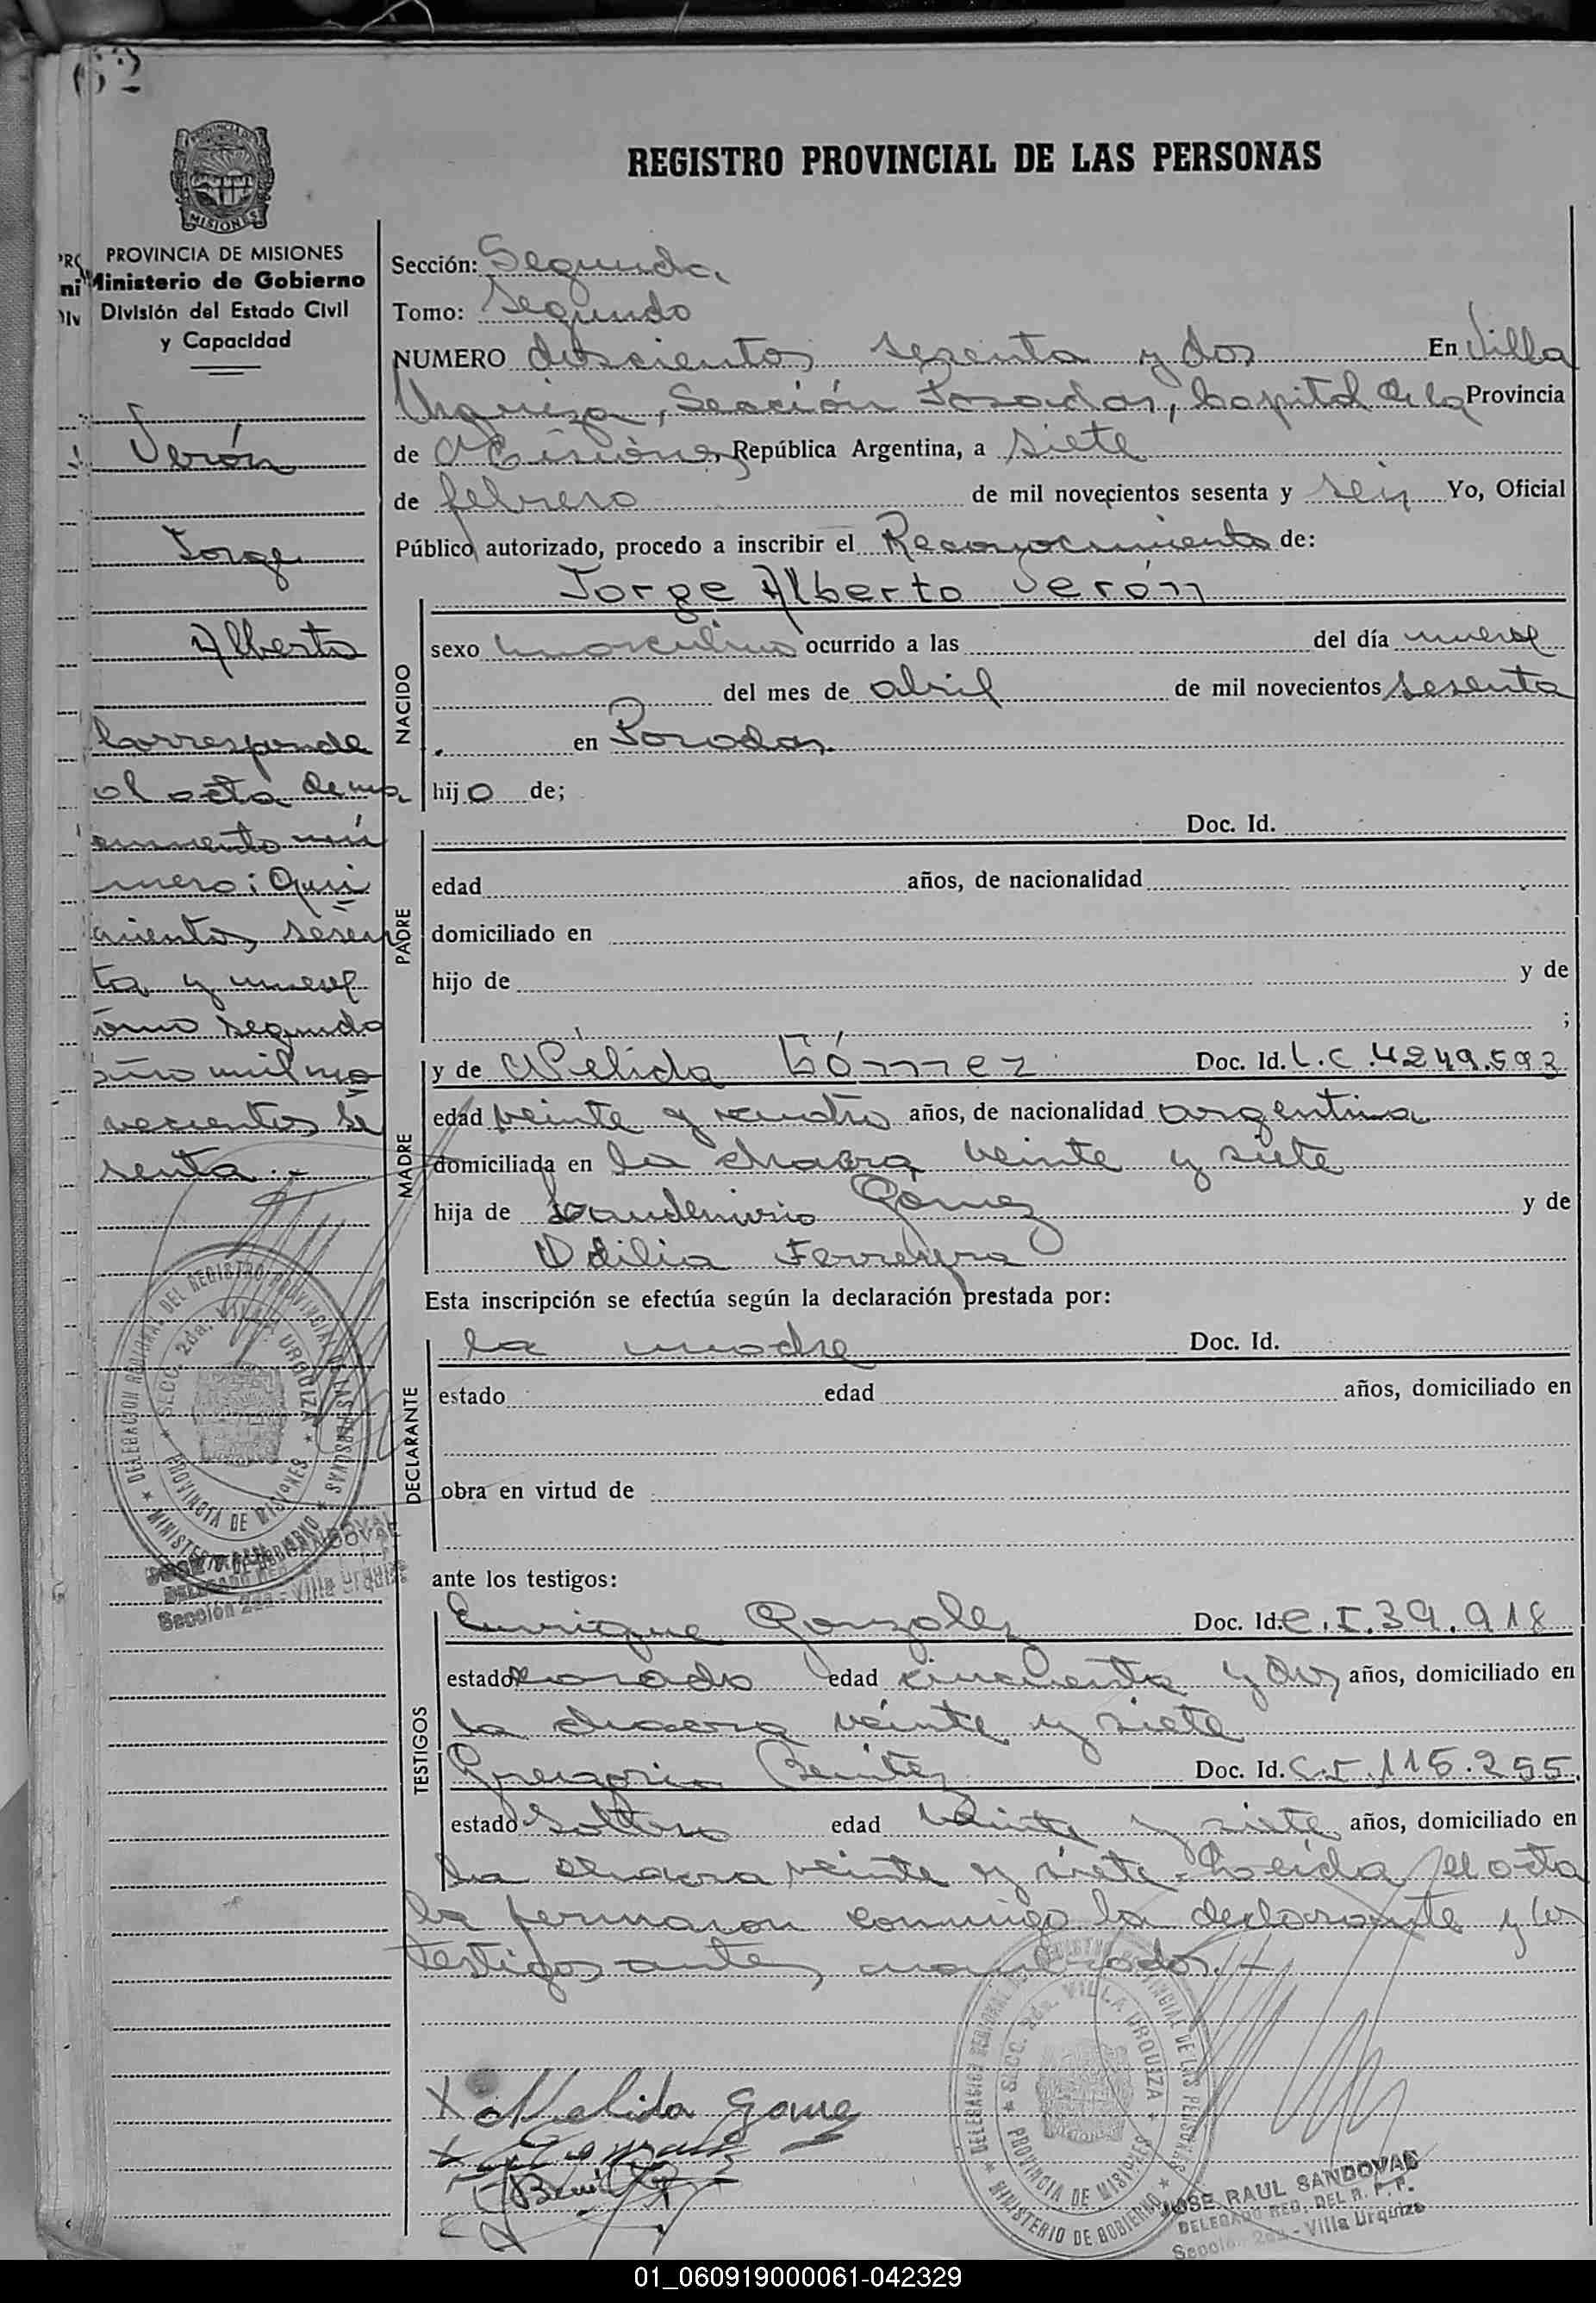 REGISTRO PROVINCIAL DE LAS PERSONAS
MISIONES
PROVINCIA DE MISIONES
Ministerio de Gobierno
División del Estado Civil
y Capacidad
Verón
Jorge
Alberto
Corresponde
al acta de na
cimiento nú
mero: Qui
nientos sesen
ta y nueve
tomo segundo
año mil no
vecientos se
senta.-
Sección: Segunda
Tomo: Segundo
NUMERO doscientos sesenta y dos En Villa
Urquiza, Sección Posadas, Capital de la Provincia
de Misiones, República Argentina, a siete
de febrero de mil novecientos sesenta y seis Yo, Oficial
Público autorizado, procedo a inscribir el Reconocimiento de:
Jorge Alberto Verón
NACIDO
sexo masculino ocurrido a las del día nueve
del mes de abril de mil novecientos sesenta
. en Posadas.
hijo de;
PADRE
Doc. Id.
edad años, de nacionalidad
domiciliado en
hijo de y de
;
MADRE
y de Nélida Gómez Doc. Id. L.C. 4249.593
edad veinte y cuatro años, de nacionalidad argentina
domiciliada en la chacra veinte y siete
hija de Gómez y de
Odilia Ferreyra
Esta inscripción se efectúa según la declaración prestada por:
DECLARANTE
la madre Doc. Id.
estado edad años, domiciliado en
obra en virtud de
ante los testigos:
TESTIGOS
Enrique González Doc. Id. C.I. 39.918
estado casado edad cincuenta y dos años, domiciliado en
la chacra veinte y siete
Gregorio Benítez Doc. Id. C.I. 115.255.
estado soltero edad veinte y siete años, domiciliado en
la chacra veinte y siete.- Leída el acta
la firmaron conmigo la declarante y los
testigos antes mencionados.-
X Nelida Gome
DELEGACION REGIONAL DEL REGISTRO PROVINCIAL DE LAS PERSONAS
SECC. 2da. VILLA URQUIZA
PROVINCIA DE MISIONES
MINISTERIO DE GOBIERNO
JOSE RAUL SANDOVAL
DELEGADO REG. DEL R. P. P.
Sección 2da - Villa Urquiza
01_060919000061-042329